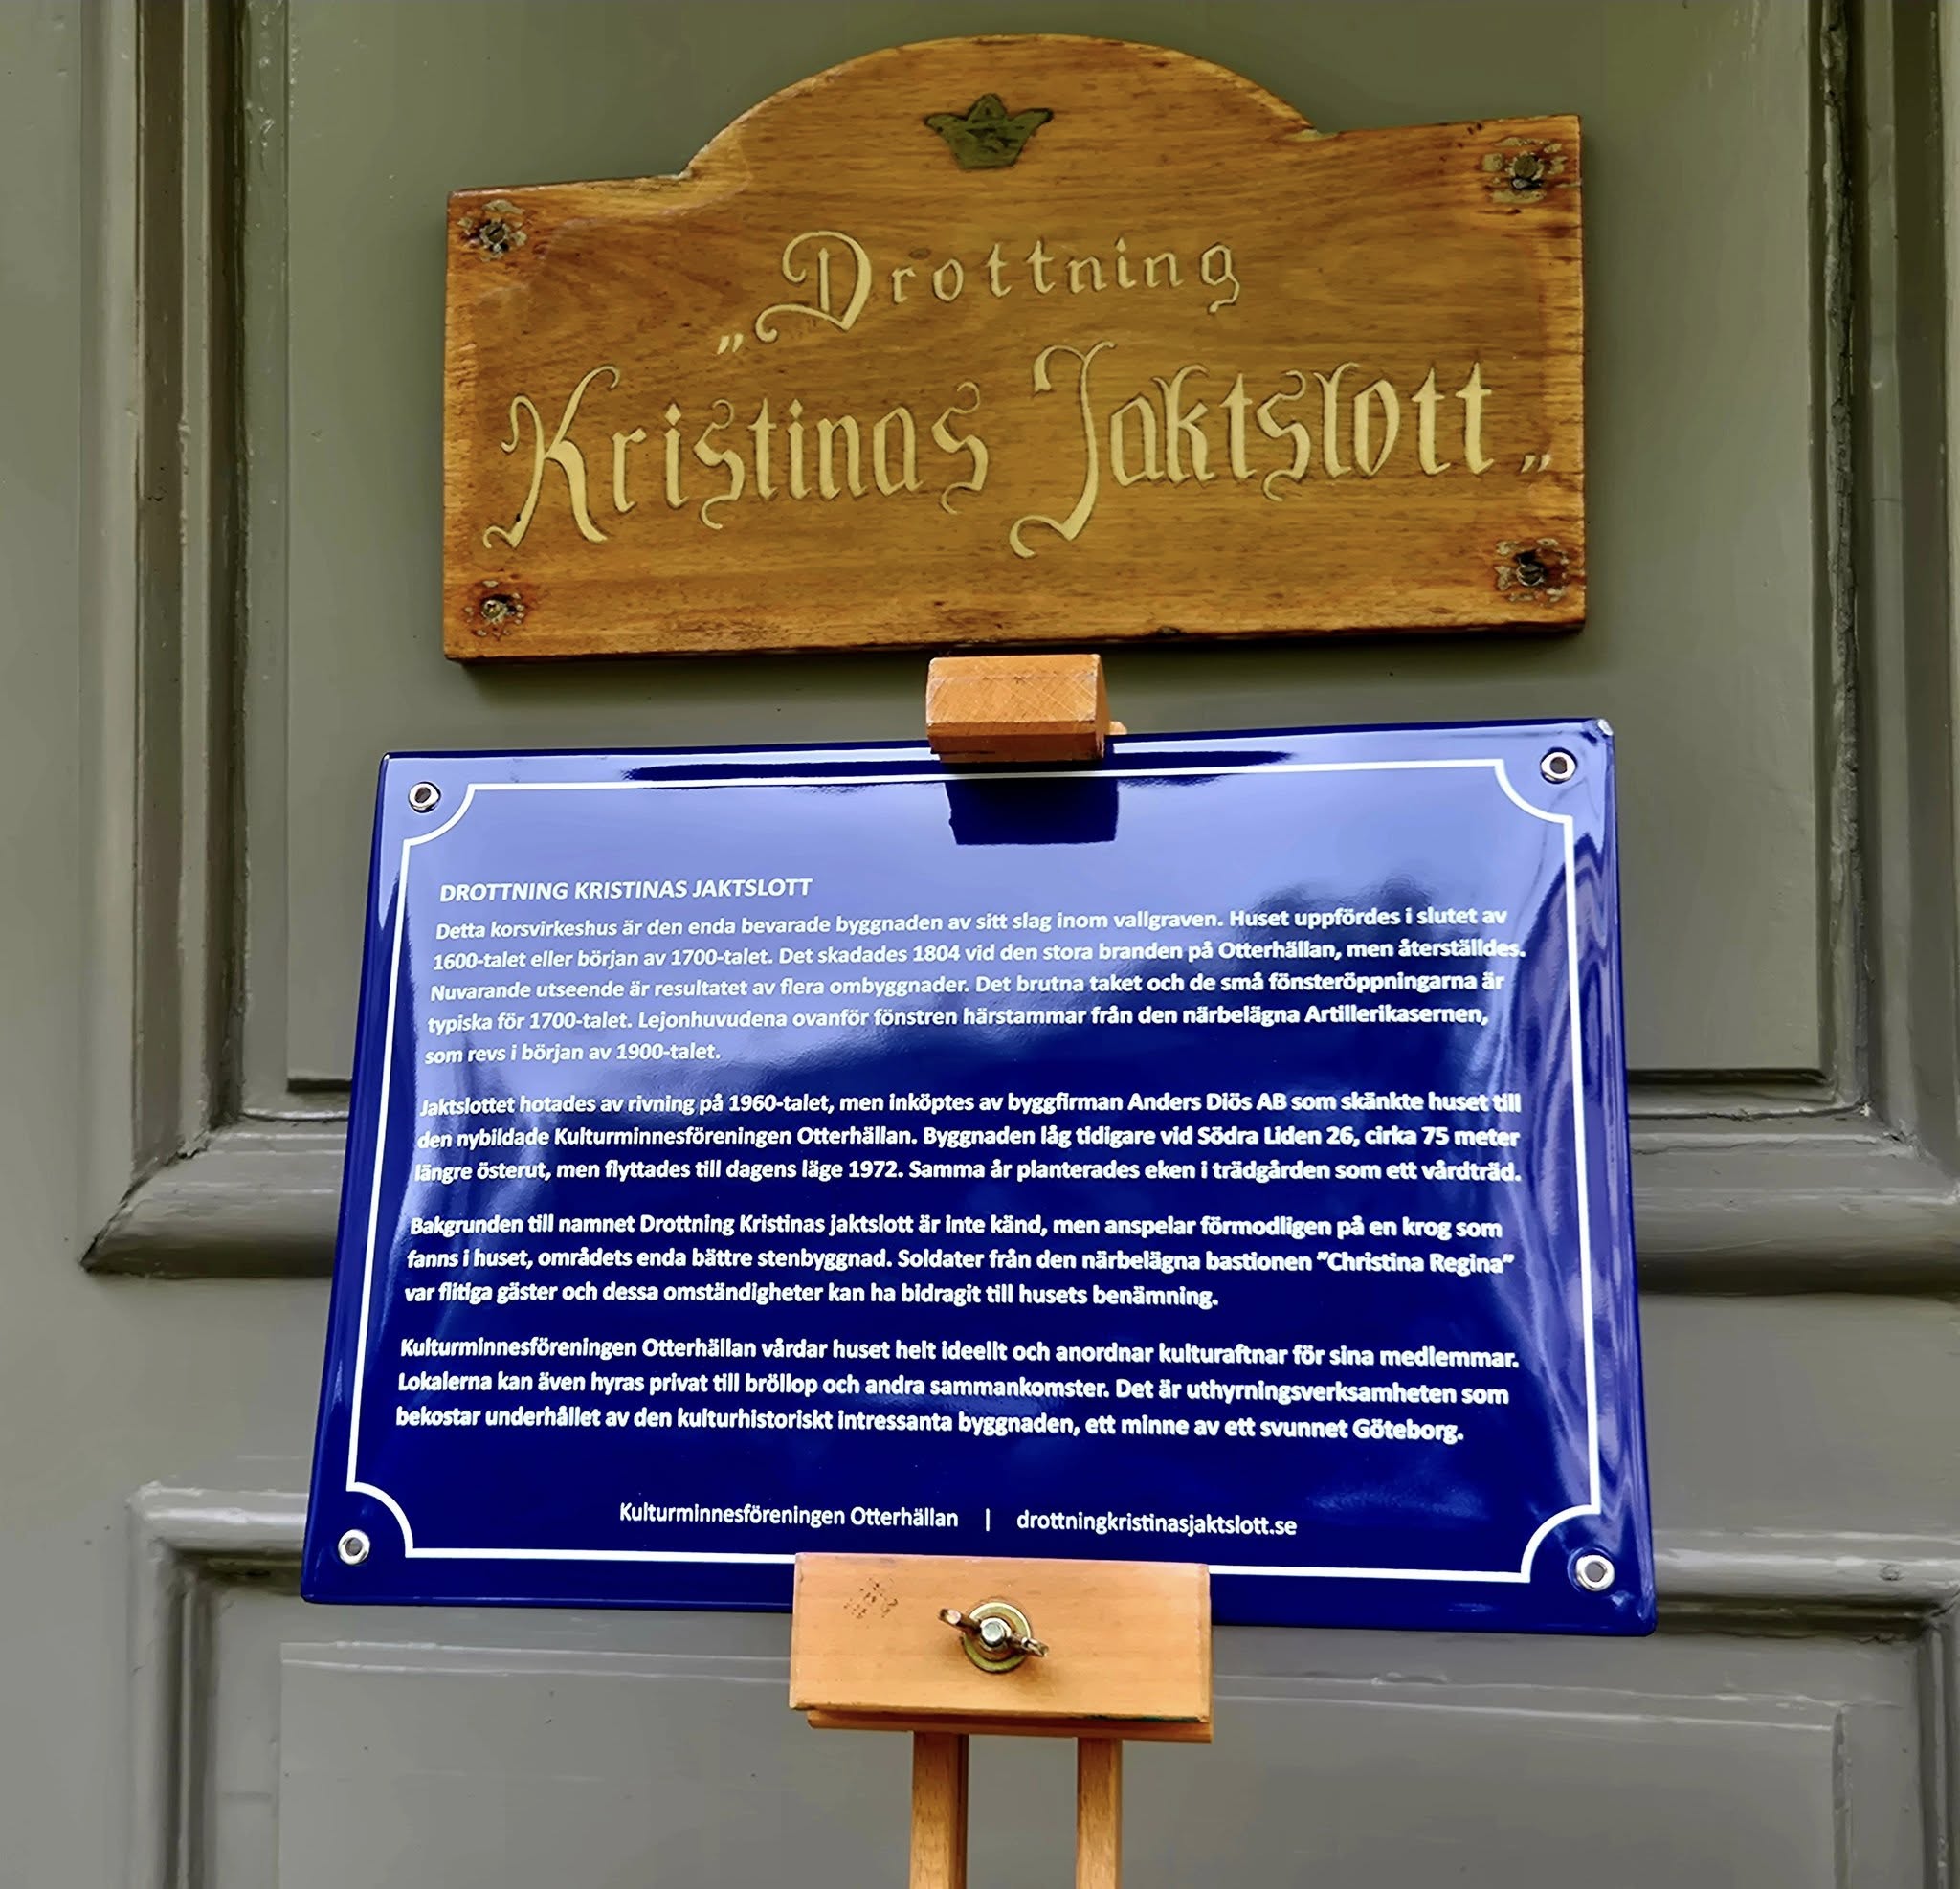 „Drottning
Kristinas Jaktslott„
DROTTNING KRISTINAS JAKTSLOTT
Detta korsvirkeshus är den enda bevarade byggnaden av sitt slag inom vallgraven. Huset uppfördes i slutet av
1600-talet eller början av 1700-talet. Det skadades 1804 vid den stora branden på Otterhällan, men återställdes.
Nuvarande utseende är resultatet av flera ombyggnader. Det brutna taket och de små fönsteröppningarna är
typiska för 1700-talet. Lejonhuvudena ovanför fönstren härstammar från den närbelägna Artillerikasernen,
som revs i början av 1900-talet.
Jaktslottet hotades av rivning på 1960-talet, men inköptes av byggfirman Anders Diös AB som skänkte huset till
den nybildade Kulturminnesföreningen Otterhällan. Byggnaden låg tidigare vid Södra Liden 26, cirka 75 meter
längre österut, men flyttades till dagens läge 1972. Samma år planterades eken i trädgården som ett vårdträd.
Bakgrunden till namnet Drottning Kristinas jaktslott är inte känd, men anspelar förmodligen på en krog som
fanns i huset, områdets enda bättre stenbyggnad. Soldater från den närbelägna bastionen ”Christina Regina”
var flitiga gäster och dessa omständigheter kan ha bidragit till husets benämning.
Kulturminnesföreningen Otterhällan vårdar huset helt ideellt och anordnar kulturaftnar för sina medlemmar.
Lokalerna kan även hyras privat till bröllop och andra sammankomster. Det är uthyrningsverksamheten som
bekostar underhållet av den kulturhistoriskt intressanta byggnaden, ett minne av ett svunnet Göteborg.
Kulturminnesföreningen Otterhällan | drottningkristinasjaktslott.se